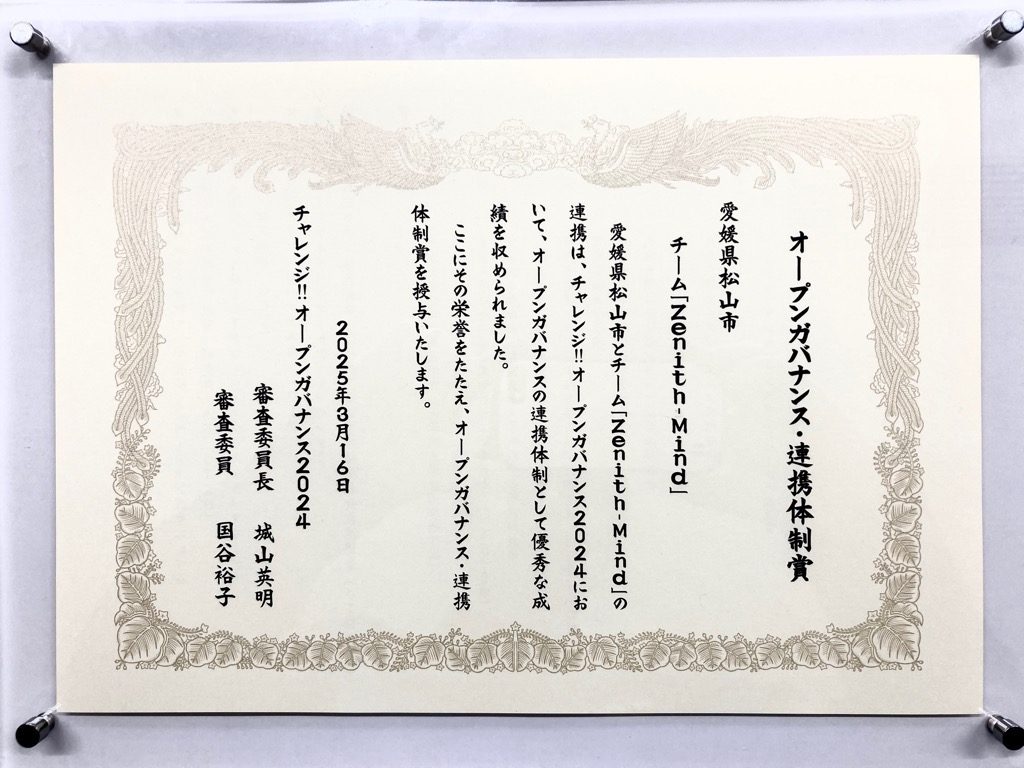 オープンガバナンス・連携体制賞
愛媛県松山市
チーム「Zenith-Mind」
愛媛県松山市とチーム「Zenith-Mind」の
連携は、チャレンジ!!オープンガバナンス2024にお
いて、オープンガバナンスの連携体制として優秀な成
績を収められました。
ここにその栄誉をたたえ、オープンガバナンス・連携
体制賞を授与いたします。
2025年3月16日
チャレンジ!!オープンガバナンス2024
審査委員長 城山英明
審査委員 国谷裕子